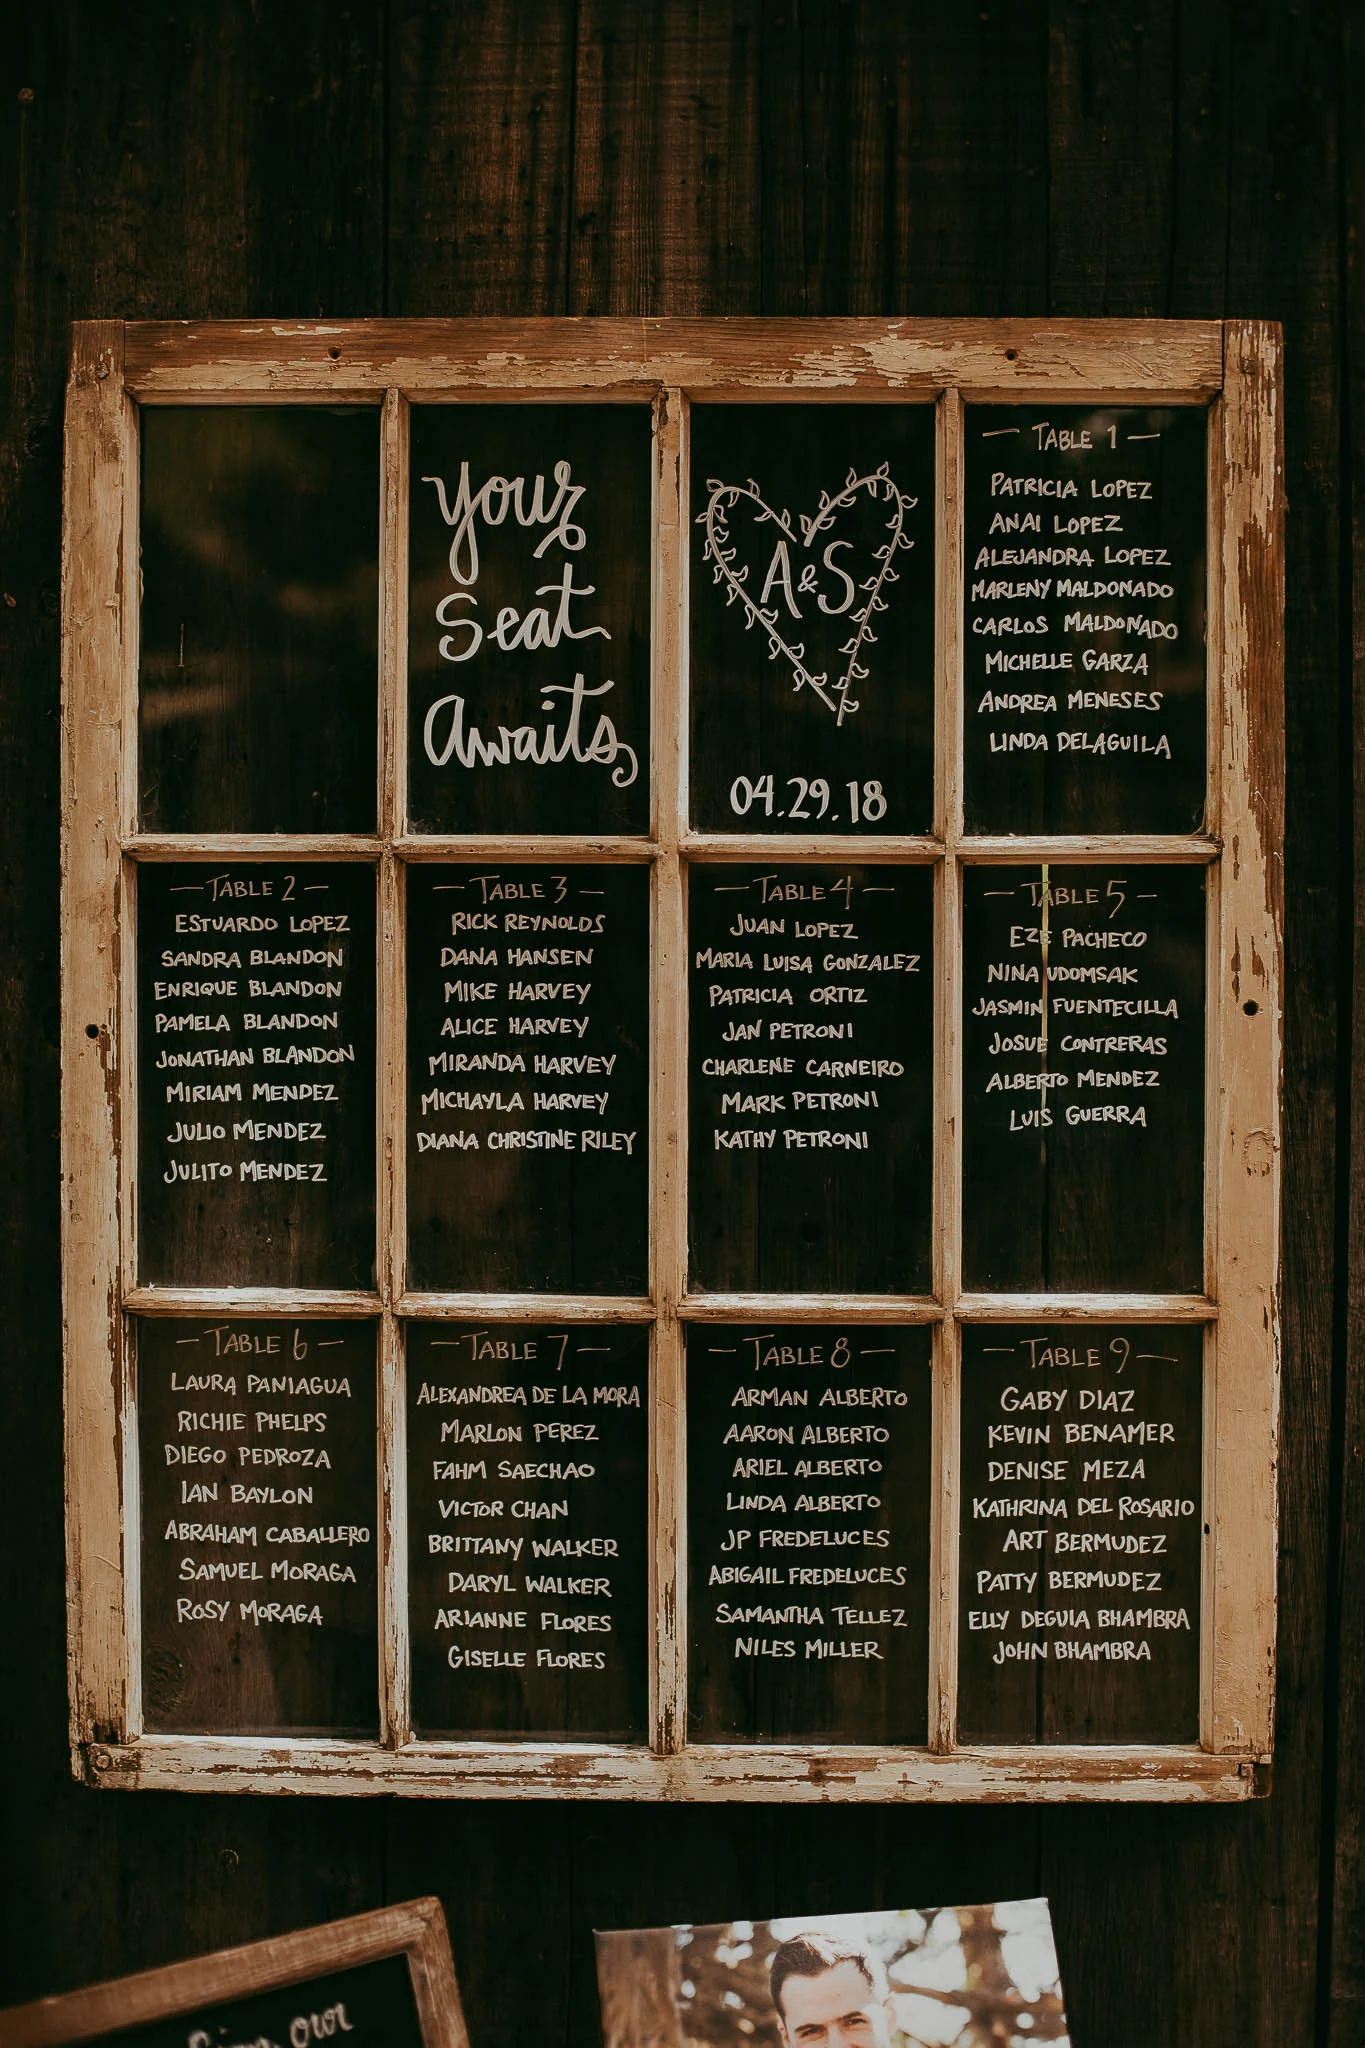 your
Seat
Awaits
A & S
04.29.18
— TABLE 1 —
PATRICIA LOPEZ
ANAI LOPEZ
ALEJANDRA LOPEZ
MARLENY MALDONADO
CARLOS MALDONADO
MICHELLE GARZA
ANDREA MENESES
LINDA DELAGUILA
— TABLE 2 —
ESTUARDO LOPEZ
SANDRA BLANDON
ENRIQUE BLANDON
PAMELA BLANDON
JONATHAN BLANDON
MIRIAM MENDEZ
JULIO MENDEZ
JULITO MENDEZ
— TABLE 3 —
RICK REYNOLDS
DANA HANSEN
MIKE HARVEY
ALICE HARVEY
MIRANDA HARVEY
MICHAYLA HARVEY
DIANA CHRISTINE RILEY
— TABLE 4 —
JUAN LOPEZ
MARIA LUISA GONZALEZ
PATRICIA ORTIZ
JAN PETRONI
CHARLENE CARNEIRO
MARK PETRONI
KATHY PETRONI
— TABLE 5 —
EZE PACHECO
NINA UDOMSAK
JASMIN FUENTECILLA
JOSUE CONTRERAS
ALBERTO MENDEZ
LUIS GUERRA
— TABLE 6 —
LAURA PANIAGUA
RICHIE PHELPS
DIEGO PEDROZA
IAN BAYLON
ABRAHAM CABALLERO
SAMUEL MORAGA
ROSY MORAGA
— TABLE 7 —
ALEXANDREA DE LA MORA
MARLON PEREZ
FAHM SAECHAO
VICTOR CHAN
BRITTANY WALKER
DARYL WALKER
ARIANNE FLORES
GISELLE FLORES
— TABLE 8 —
ARMAN ALBERTO
AARON ALBERTO
ARIEL ALBERTO
LINDA ALBERTO
JP FREDELUCES
ABIGAIL FREDELUCES
SAMANTHA TELLEZ
NILES MILLER
— TABLE 9 —
GABY DIAZ
KEVIN BENAMER
DENISE MEZA
KATHRINA DEL ROSARIO
ART BERMUDEZ
PATTY BERMUDEZ
ELLY DEGUIA BHAMBRA
JOHN BHAMBRA
our